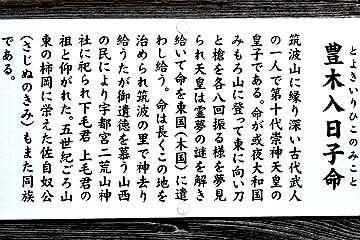 豊木入日子命
とよきいりひこのみこと
筑波山に縁り深い古代武人
の一人で第十代崇神天皇の
皇子である。命が或夜大和国
みもろ山に登って東に向い刀
と槍を各八回振る様を夢見
られ天皇は霊夢の謎を解き
給いて命を東国(木国)に遣
わし給う。命は長くこの地を
治められ筑波の里で神去り
給うたが御遺徳を慕う山西
の民により宇都宮二荒山神
社に祀られ下毛君 上毛君の
祖と仰がれた。五世紀ごろ山
東の柿岡に栄えた佐自奴公
(さじぬのきみ)もまた同族
である。